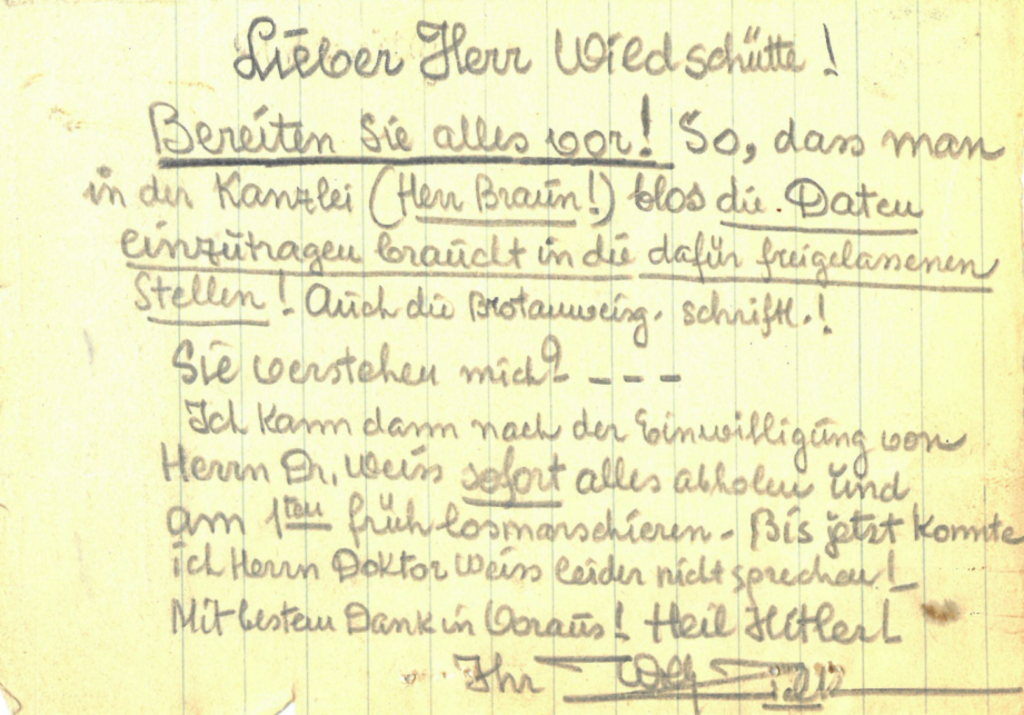 Lieber Herr Wildschütte!
Bereiten Sie alles vor! So, dass man
in der Kanzlei (Herr Braun!) blos die Daten
einzutragen braucht in die dafür freigelassenen
Stellen! Auch die Brotanweisg. schriftl.!
Sie verstehen mich? - - -
Ich kann dann nach der Einwilligung von
Herrn Dr. Weiss sofort alles abholen und
am 1ten früh losmarschieren. Bis jetzt konnte
ich Herrn Doktor Weiss leider nicht sprechen!
Mit bestem Dank in Voraus! Heil Hitler!
Ihr